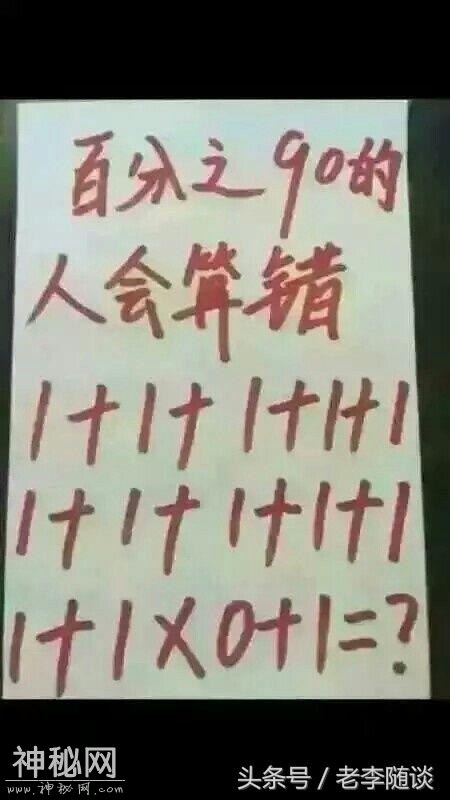 百分之90的
人会算错
1+1+1+1+1
1+1+1+1+1
1+1×0+1=?
神秘网
www.神秘网.com
头条号/老李随谈